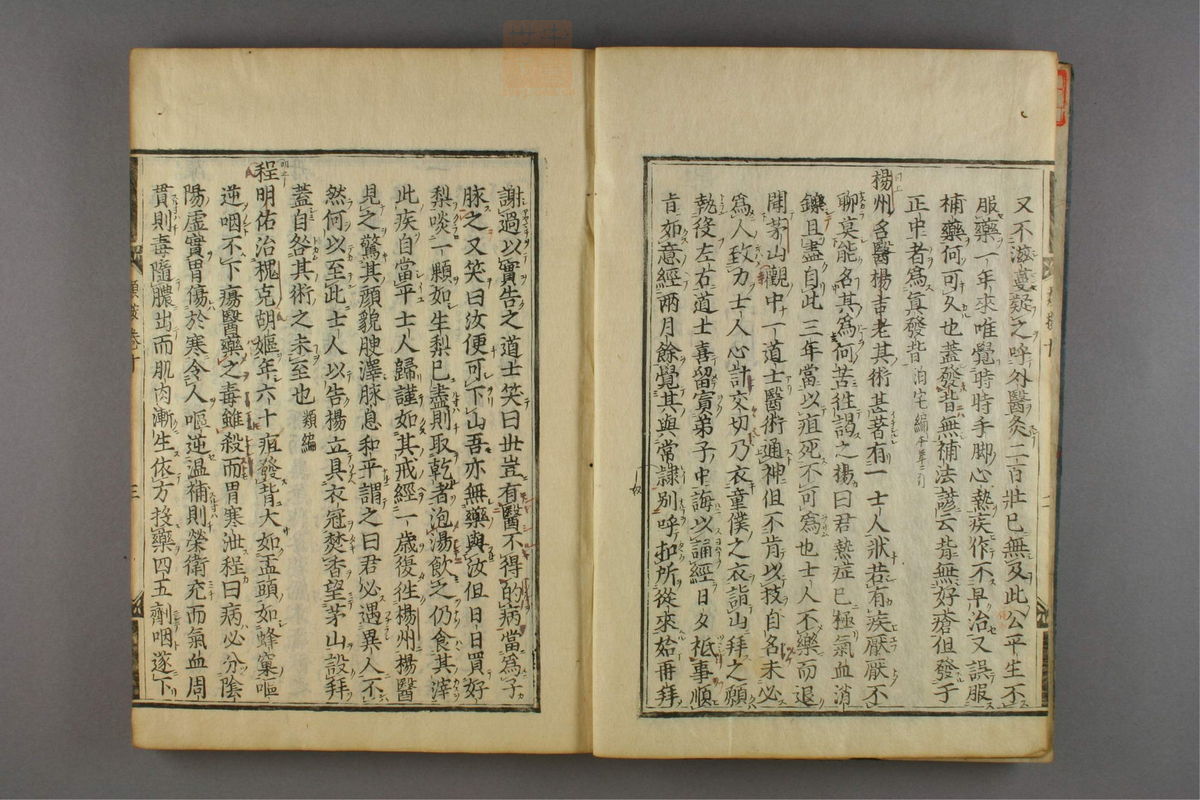 又不滋蔓疑之呼外醫灸二百壯已無及此公平生不
服藥一年來唯覺時時手脚心熱疾作不早治又誤服
補藥何可久也蓋發背無補法諺云背無好瘡但發于
正中者為真發背 泊宅編
楊州名醫楊吉老其術甚著有一士人狀若有疾厭厭不
聊莫能名其為何苦往謁之楊曰君熱症已極氣血消
鑠且盡自此三年當以疽死不可為也士人不藥而退
聞茅山觀中一道士醫術通神但不肯以技自名未必
為人致力士人心計交切乃衣童僕之衣詣山拜之願
執役左右道士喜留寘弟子中誨以誦經日夕柢事順
肯如意經兩月餘覺其與常隷別呼扣所從來始再拜
謝過以實告之道士笑曰世豈有醫不得的病當為子
脉之又笑曰汝便可下山吾亦無藥與汝但日日買好
梨啖一顆如生梨已盡則取乾者泡湯飲之仍食其滓
此疾自當平士人歸謹如其戒經一歲復徃楊州楊醫
見之驚其顔貌腴澤脉息和平謂之曰君必遇異人不
然何以至此士人以告楊立具衣冠焚香望茅山設拜
蓋自咎其術之未至也 類編
程明佑治槐克胡嫗年六十疽發背大如盂頭如蜂窠嘔
逆咽不下瘍醫藥之毒雖殺而胃寒泄程曰病必分陰
陽虛實胃傷於寒令人嘔逆温補則榮衛充而氣血周
貫則毒隨膿出而肌肉漸生依方投藥四五劑咽遂下